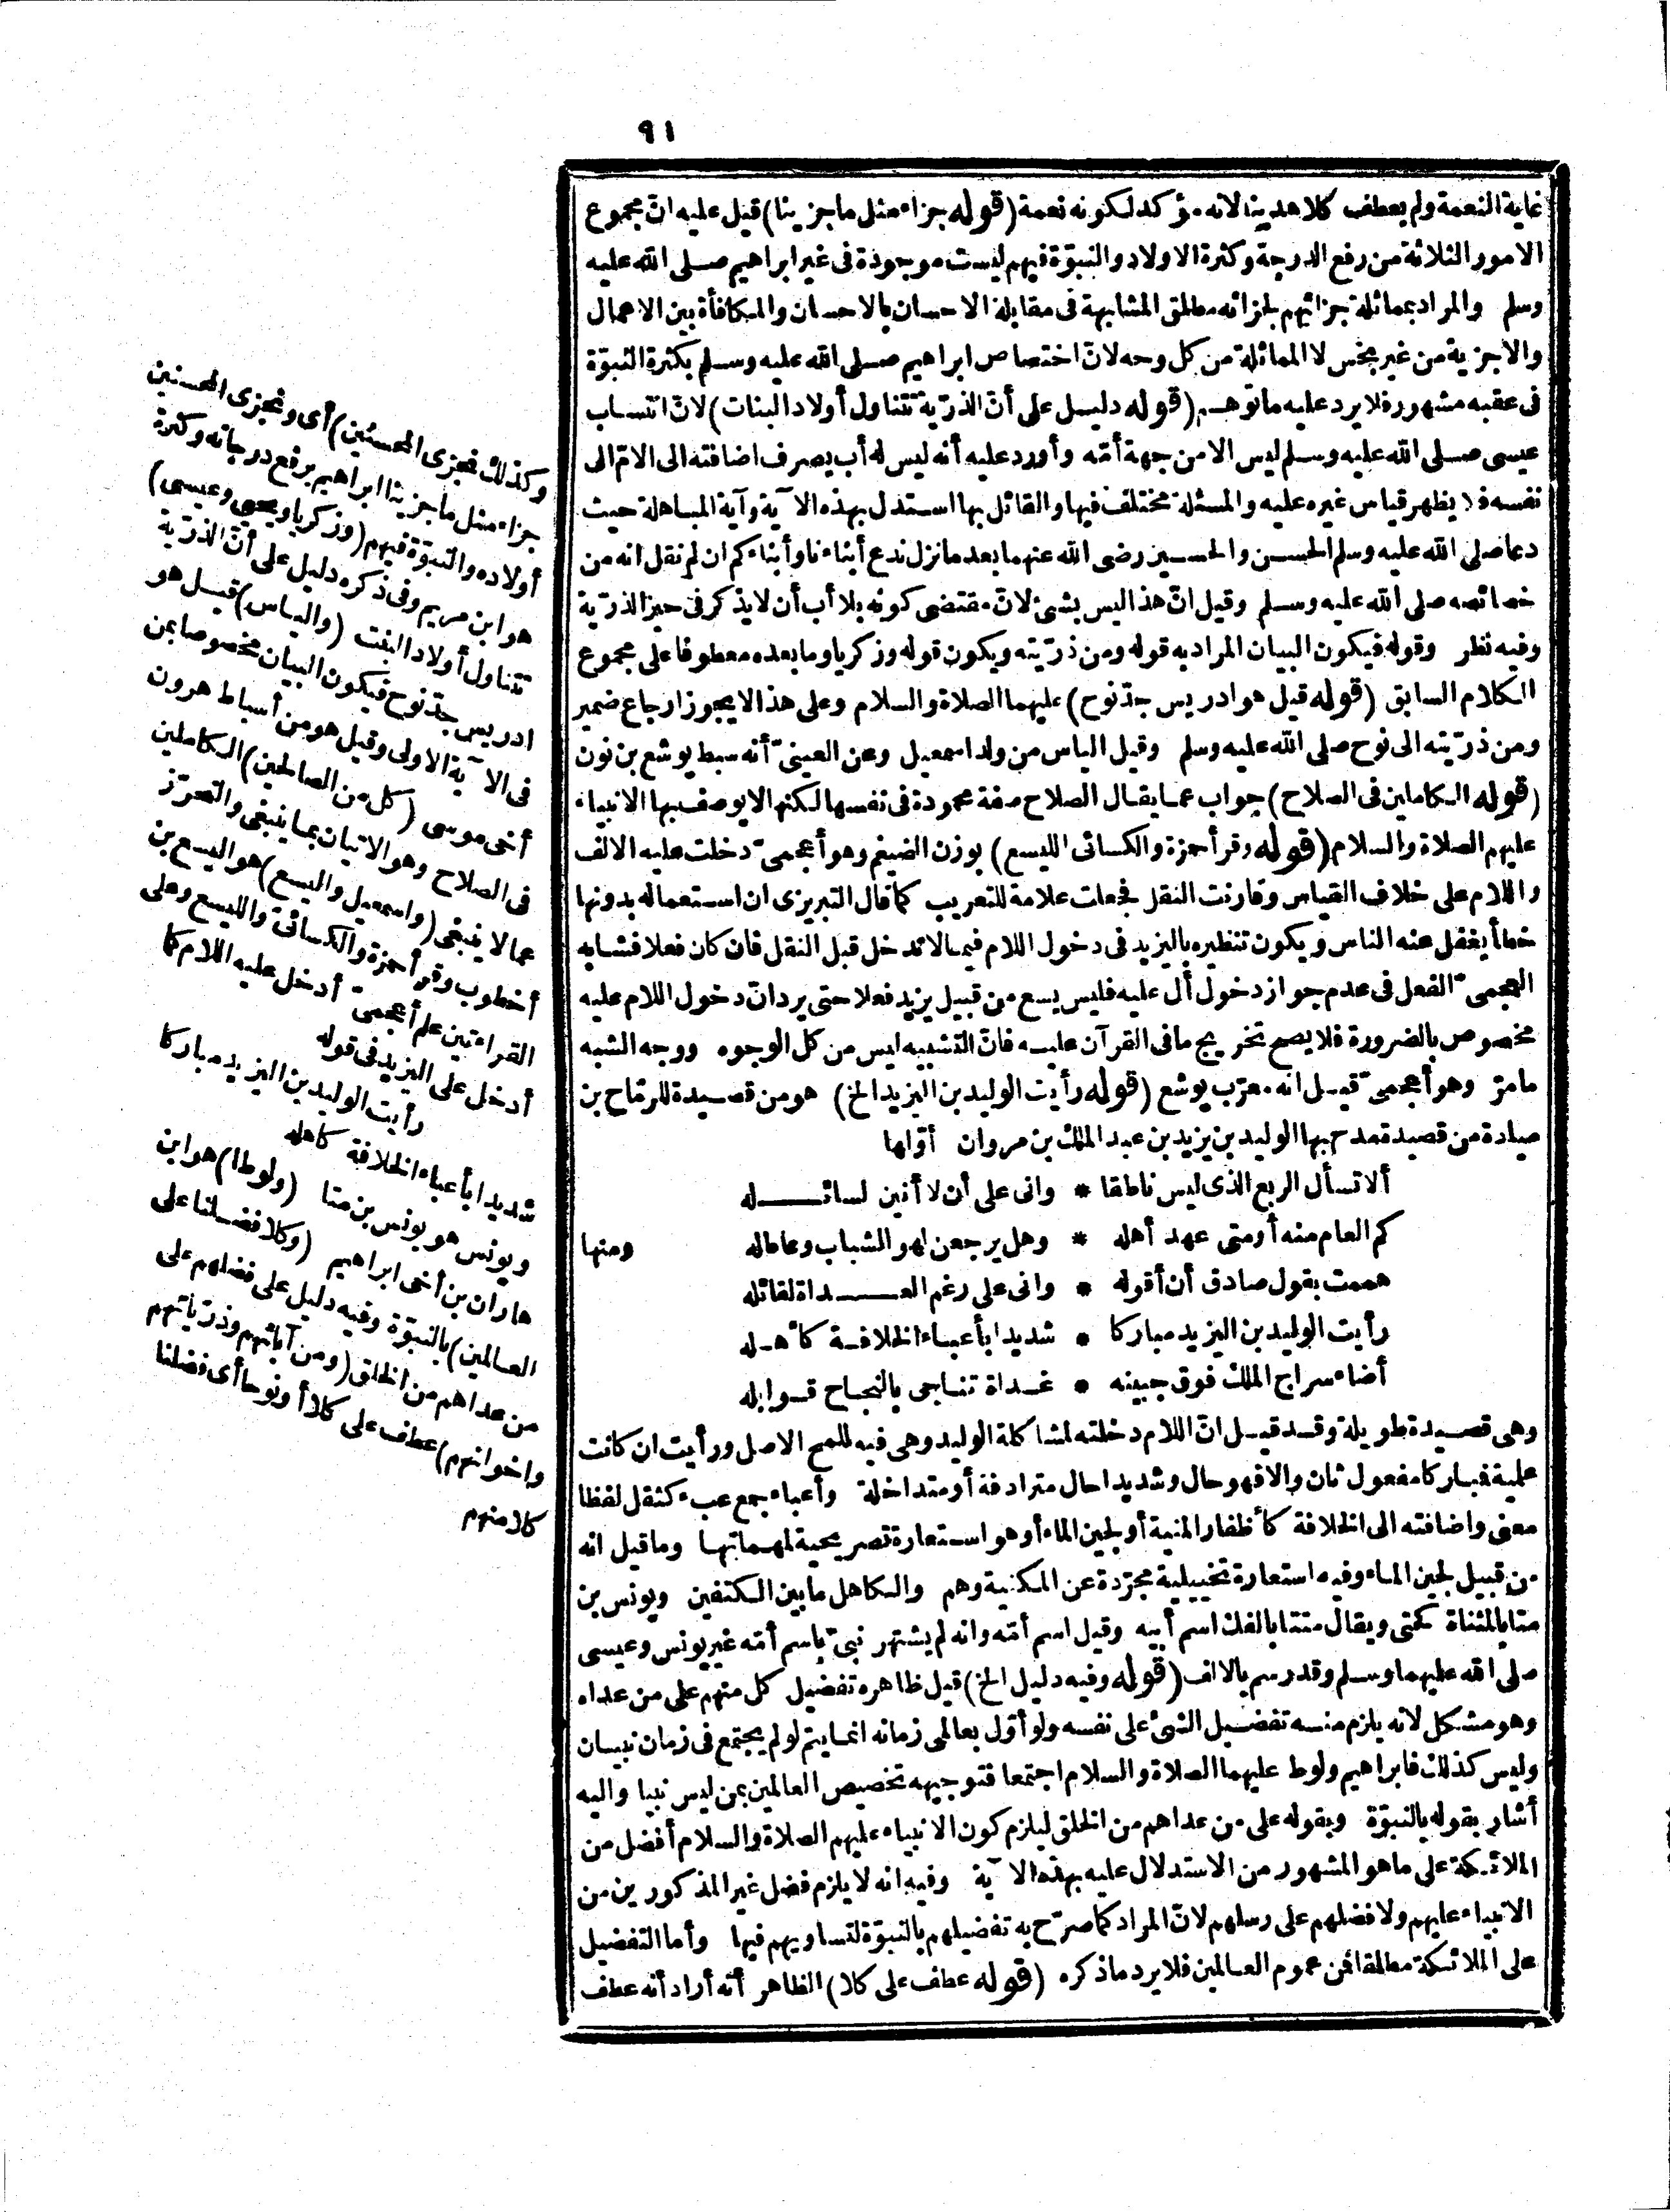 ٩١
غاية النعمة ولم يعطف كلا هدينا لانه مؤكد لكونه نعمة (قوله جزاء مثل ما جزينا) قيل عليه انّ مجموع
الامور الثلاثة من رفع الدرجة وكثرة الاولاد والنبوّة فيهم ليست موجودة فى غير ابراهيم صلى الله عليه
وسلم والمراد بمماثلة جزائهم لجزائه مطلق المشابهة فى مقابلة الاحسان بالاحسان والمكافأة بين الاعمال
والاجزية من غير بخس لا المماثلة من كل وجه لانّ اختصاص ابراهيم صلى الله عليه وسلم بكثرة النبوّة
فى عقبه مشهورة فلا يرد عليه ما توهم (قوله دليل على أنّ الذرّية تتناول أولاد البنات) لانّ انتساب
عيسى صلى الله عليه وسلم ليس الا من جهة أمّه وأورد عليه أنه ليس له أب يصرف اضافته الى الامّ الى
نفسه فلا يظهر قياس غيره عليه والمسئلة مختلف فيها والقائل بها استدل بهذه الآية وآية المباهلة حيث
دعا صلى الله عليه وسلم الحسن والحسين رضى الله عنهما بعد ما نزل ندع أبناءنا وأبناءكم ان لم نقل انه من
خصائصه صلى الله عليه وسلم وقيل انّ هذا ليس بشئ لانّ مقتضى كونه بلا أب أن لا يذكر فى حيز الذرّية
وفيه نظر وقوله فيكون البيان المراد به قوله ومن ذرّيته ويكون قوله وزكريا وما بعده معطوفا على مجموع
الكلام السابق (قوله قيل هو ادريس جدّ نوح) عليهما الصلاة والسلام وعلى هذا لا يجوز ارجاع ضمير
ومن ذرّيته الى نوح صلى الله عليه وسلم وقيل الياس من ولد اسمعيل وعن العينىّ أنه سبط يوشع بن نون
(قوله الكاملين فى الصلاح) جواب عما يقال الصلاح صفة محمودة فى نفسها لكنها لا يوصف بها الانبياء
عليهم الصلاة والسلام (قوله وقرأ حمزة والكسائى الليسع) بوزن الضيغم وهو أعجمىّ دخلت عليه الالف
واللام على خلاف القياس وقارنت النقل فجعلت علامة للتعريب كما قال التبريزى ان استعماله بدونها
خطأ يغفل عنه الناس ويكون تنظيره باليزيد فى دخول اللام فيما لا تدخل قبل النقل فان كان فعلا فشابه
العجمىّ الفعل فى عدم جواز دخول أل عليه فليس يسع من قبيل يزيد فعلا حتى يرد انّ دخول اللام عليه
مخصوص بالضرورة فلا يصح تخريج ما فى القرآن عليه فانّ التشبيه ليس من كل الوجوه ووجه الشبه
ما مرّ وهو أعجمىّ قيل انه معرّب يوشع (قوله رأيت الوليد بن اليزيد الخ) هو من قصيدة للرمّاح بن
ميادة من قصيدة مدح بها الوليد بن يزيد بن عبد الملك بن مروان أوّلها
ألا تسأل الربع الذى ليس ناطقا * وانى على أن لا أبين لسائله
كم العام منه أو متى عهد أهله * وهل يرجعن لهو الشباب وعاطله ومنها
هممت بقول صادق أن أقوله * وانى على رغم العداة لقائله
رأيت الوليد بن اليزيد مباركا * شديدا بأعباء الخلافة كاهله
أضاء سراج الملك فوق جبينه * غداة تناجى بالنجاح قوابله
وهى قصيدة طويلة وقد قيل انّ اللام دخلته لمشاكلة الوليد وهى فيه للمح الاصل ورأيت ان كانت
علمية فباركا مفعول ثان والا فهو حال وشديدا حال مترادفة أو متداخلة وأعباء جمع عبء كثقل لفظا
معنى واضافته الى الخلافة كأظفار المنية أو لجين الماء أو هو استعارة تصريحية لمهماتها وما قيل انه
من قبيل لجين الماء وفيه استعارة تخييلية مجرّدة عن المكنية وهم والكاهل ما بين الكتفين ويونس بن
متا بالمثناة كحتى ويقال متتا بالفك اسم أبيه وقيل اسم أمّه وانه لم يشتهر نبىّ باسم أمّه غير يونس وعيسى
صلى الله عليهما وسلم وقد رسم بالالف (قوله وفيه دليل الخ) قيل ظاهره تفضيل كل منهم على من عداه
وهو مشكل لانه يلزم منه تفضيل الشئ على نفسه ولو أوّل بعالمى زمانه انما يتم لو لم يجتمع فى زمان نبيان
وليس كذلك فابراهيم ولوط عليهما الصلاة والسلام اجتمعا فتوجيهه تخصيص العالمين بمن ليس نبيا واليه
أشار بقوله بالنبوّة وبقوله على من عداهم من الخلق ليلزم كون الانبياء عليهم الصلاة والسلام أفضل من
الملائكة على ما هو المشهور من الاستدلال عليه بهذه الآية وفيه انه لا يلزم فضل غير المذكورين من
الانبياء عليهم ولا فضلهم على رسلهم لانّ المراد كما صرّح به تفضيلهم بالنبوّة لتساويهم فيها وأما التفضيل
على الملائكة مطلقا فمن عموم العالمين فلا يرد ما ذكره (قوله عطف على كلا) الظاهر أنه أراد أنه عطف
وكذلك نجزى المحسنين) أى ونجزى المحسنين
جزاء مثل ما جزينا ابراهيم برفع درجاته وكثرة
أولاده والنبوّة فيهم (وزكريا ويحيى وعيسى)
هو ابن مريم وفى ذكره دليل على أنّ الذرّية
تتناول أولاد البنت (والياس) قيل هو
ادريس جدّ نوح فيكون البيان مخصوصا بمن
فى الآية الاولى وقيل هو من أسباط هرون
أخى موسى (كل من الصالحين) الكاملين
فى الصلاح وهو الاتيان بما ينبغى والتحرّز
عما لا ينبغى (واسمعيل واليسع) هو اليسع بن
أخطوب وقرأ حمزة والكسائىّ والليسع وعلى
القراءتين علم أعجمىّ أدخل عليه اللام كما
أدخل على اليزيد فى قوله
رأيت الوليد بن اليزيد مباركا
شديدا بأعباء الخلافة كاهله
ويونس هو يونس بن متا (ولوطا) هو ابن
هاران بن أخى ابراهيم (وكلا فضلنا على
العالمين) بالنبوّة وفيه دليل على فضلهم على
من عداهم من الخلق (ومن آبائهم وذرّياتهم
واخوانهم) عطف على كلا أو نوحا أى فضلنا
كلا منهم